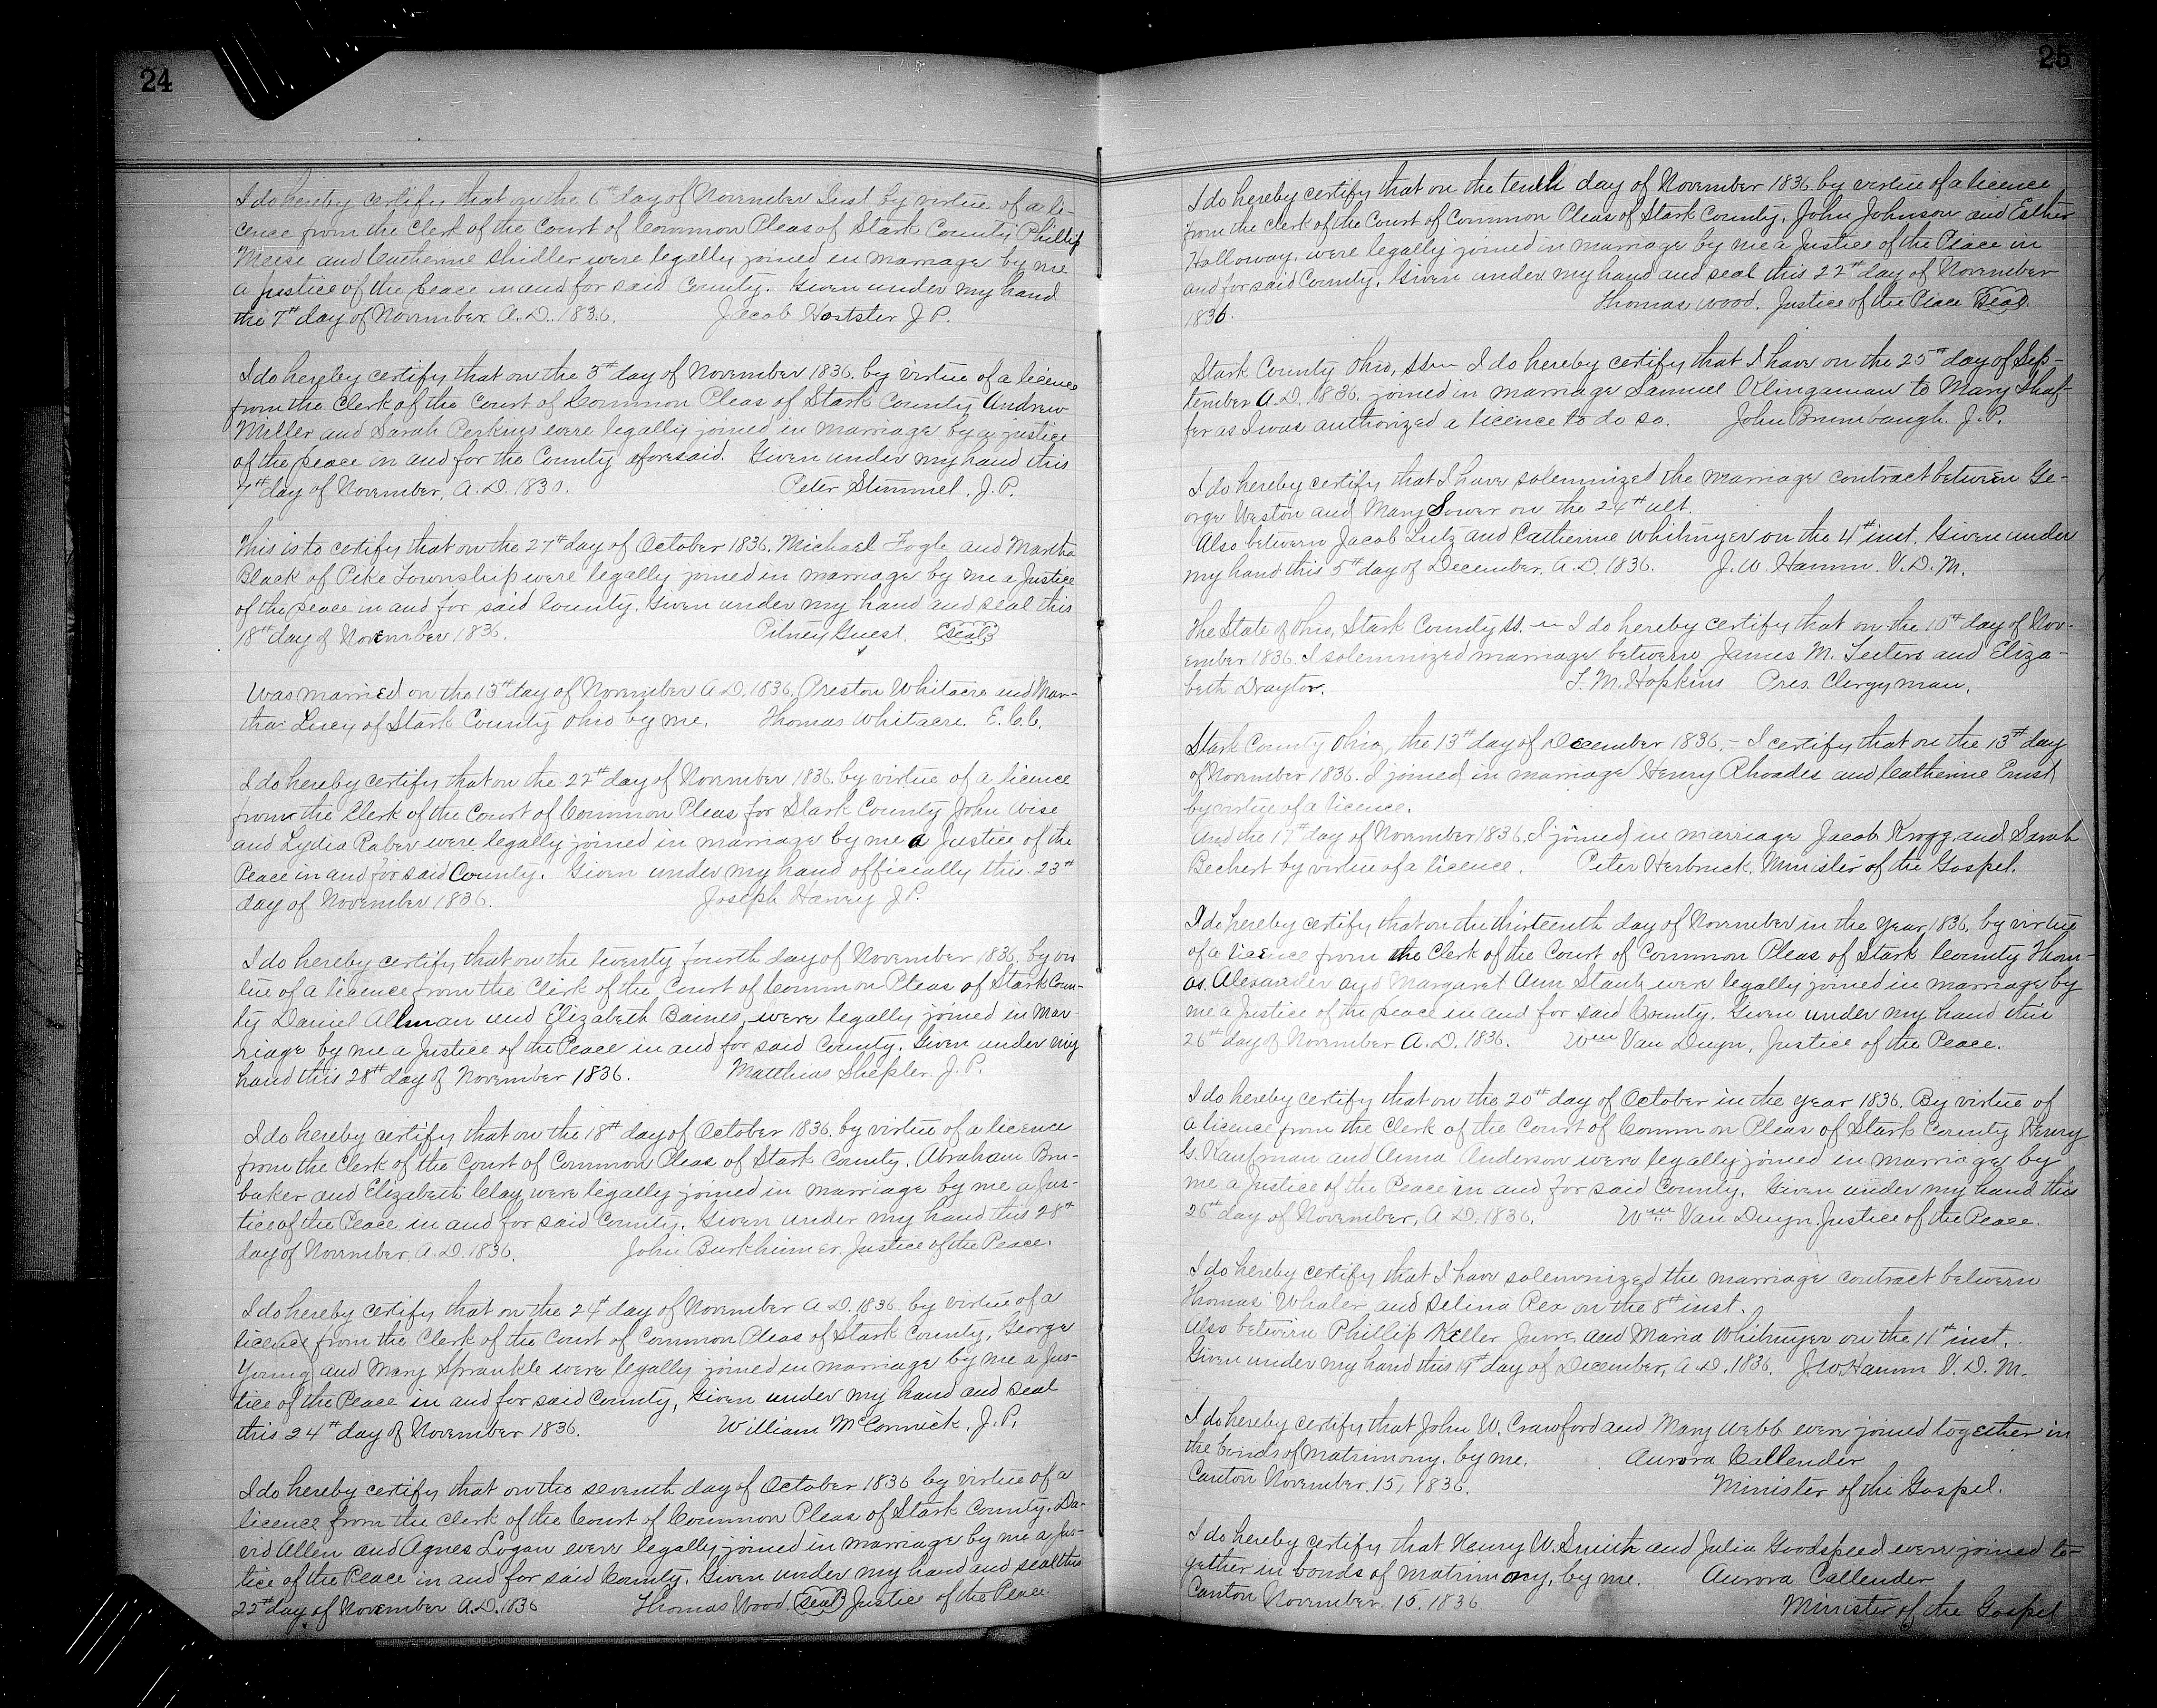 24
I do hereby certify that on the 6th day of November Inst by virtue of a li-
cence from the Clerk of the Court of Common Pleas of Stark County Phillip
Meese and Catherine Shidler were legally joined in marriage by me
a justice of the peace in and for said County. Given under my hand
the 7th day of November A.D. 1836. Jacob Hostster J P.
I do hereby certify that on the 3rd day of November 1836. by virtue of a licence
from the Clerk of the Court of Common Pleas of Stark County Andrew
Miller and Sarah Perkins were legally joined in marriage by a justice
of the peace in and for the County aforesaid. Given under my hand this
7th day of November, A.D. 1830. Peter Stimmel, J.P.
This is to certify that on the 27th day of October 1836, Michael Fogle and Martha
Black of Pike Township were legally joined in marriage by me a Justice
of the peace in and for said County. Given under my hand and seal this
18th day of November 1836. Pitney Guest. Seal
Was married on the 13th day of November A.D. 1836, Preston Whitacre and Mar-
tha Lucy of Stark County Ohio by me. Thomas Whitacre. E.C.C.
I do hereby certify that on the 22nd day of November 1836. by virtue of a licence
from the Clerk of the Court of Common Pleas for Stark County John Wise
and Lydia Raber were legally joined in marriage by me a Justice of the
Peace in and for said County. Given under my hand officially this 23rd
day of November 1836. Joseph Harvey J P.
I do hereby certify that on the twenty fourth day of November 1836. by vir
tue of a licence from the Clerk of the Court of Common Pleas of Stark Coun-
ty Daniel Allman and Elizabeth Baines, were legally joined in Mar-
riage by me a Justice of the Peace in and for said County. Given under my
hand this 28th day of November 1836. Matthias Shepler. J. P.
I do hereby certify that on the 18th day of October 1836. by virtue of a licence
from the Clerk of the Court of Common Pleas of Stark County. Abraham Bru-
baker and Elizabeth Clay were legally joined in marriage by me a Jus-
tice of the Peace in and for said County. Given under my hand this 28th
day of November, A.D. 1836. John Burkhimer Justice of the Peace.
I do hereby certify that on the 24th day of November A.D. 1836 by virtue of a
licence from the Clerk of the Court of Common Pleas of Stark County, George
Young and Mary Sprankle were legally joined in marriage by me a Jus-
tice of the Peace in and for said County, Given under my hand and seal
this 24th day of November 1836. William McCormick. J.P.
I do hereby certify that on the seventh day of October 1836 by virtue of a
licence from the Clerk of the Court of Common Pleas of Stark County. Da-
vid Allen and Agnes Logan were legally joined in marriage by me a Jus-
tice of the Peace in and for said County. Given under my hand and seal this
22nd day of November A.D. 1836 Thomas Wood. Seal Justice of the Peace.
25
I do hereby certify that on the tenth day of November 1836 by virtue of a licence
from the Clerk of the Court of Common Pleas of Stark County, John Johnson and Esther
Halloway, were legally joined in marriage by me a Justice of the Peace in
and for said County. Given under my hand and seal this 22nd day of November
1836. Thomas Wood. Justice of the Peace Seal
Stark County Ohio, ss I do hereby certify that I have on the 25th day of Sep-
tember A.D. 1836. joined in marriage Samuel Klingaman to Mary Shaf-
fer as I was authorized a licence to do so. John Brumbaugh. J.P.
I do hereby certify that I have solemnized the marriage contract between Ge-
orge Weston and Mary Sower on the 24th ult.
Also between Jacob Lutz and Catherine Whitmyer on the 4th inst. Given under
my hand this 5th day of December, A.D. 1836. J. W. Hamm. V. D. M.
The State of Ohio, Stark County ss. I do hereby certify that on the 10th day of Nov-
ember 1836. I solemnized marriage between James M. Teeters and Eliza-
beth Draytor. T. M. Hopkins Pres. Clergyman.
Stark County Ohio, the 13th day of December 1836. - I certify that on the 13th day
of November 1836. I joined in marriage Henry Rhoades and Catherine Ernst
by virtue of a licence.
And the 17th day of November 1836. I joined in marriage Jacob Krogg and Sarah
Bechert by virtue of a licence. Peter Herbruck. Minister of the Gospel.
I do hereby certify that on the thirteenth day of November in the year 1836. by virtue
of a licence from the Clerk of the Court of Common Pleas of Stark County Thom-
as. Alexander and Margaret Ann Staub were legally joined in marriage by
me a Justice of the peace in and for said County. Given under my hand this
26th day of November A.D. 1836. Wm Van Duyn, Justice of the Peace.
I do hereby certify that on the 20th day of October in the year 1836. By virtue of
a licence from the Clerk of the Court of Common Pleas of Stark County Henry
G. Kaufman and Anna Anderson were legally joined in marriage by
me a Justice of the Peace in and for said County. Given under my hand this
26th day of November, A.D. 1836. Wm Van Duyn. Justice of the Peace.
I do hereby certify that I have solemnized the marriage contract between
Thomas Whaler and Selina Rex on the 8th inst.
Also between Phillip Keller Junr. and Maria Whitmyer on the 11th inst.
Given under my hand this 19th day of December, A.D. 1836. J. W. Hamm V. D. M.
I do hereby certify that John W. Crawford and Mary Webb were joined together in
the bonds of matrimony. by me. Aurora Callender
Canton November. 15, 1836. Minister of the Gospel.
I do hereby certify that Henry W. Smith and Julia Goodspeed were joined to-
gether in bonds of matrimony, by me. Aurora Callender
Canton November. 15. 1836 Minister of the Gospel